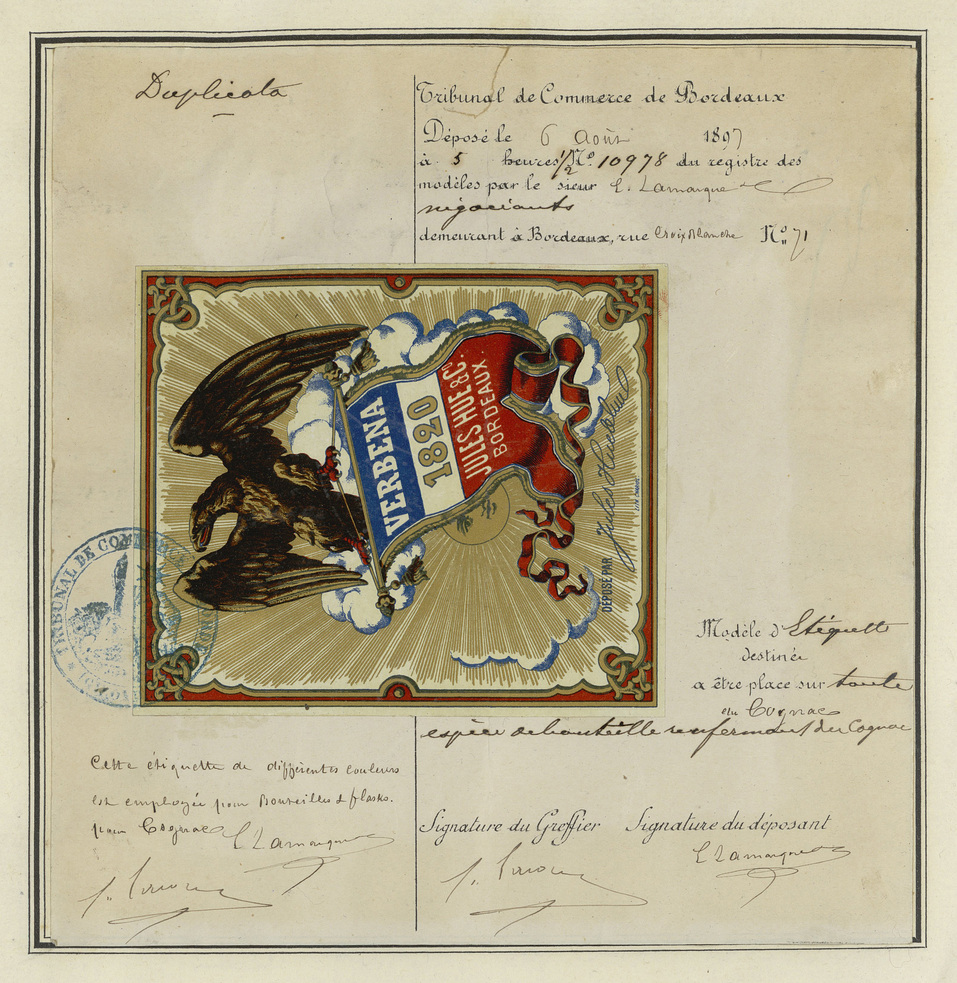 Duplicata
Tribunal de Commerce de Bordeaux
Déposé le 6 Août 1897
à 5 heures 1/2 No. 10978 du registre des
modèles par le sieur E. Lamarque
négociants
demeurant à Bordeaux, rue Croix Blanche No 71
VERBENA
1820
JULES HUE & Co.
BORDEAUX.
DÉPOSÉ PAR
TRIBUNAL DE COMMERCE
Modèle d'Etiquette
destinée
a être place sur toute
espèce de bouteille renfermant du Cognac
du Cognac
Cette étiquette de différentes couleurs
est employée pour Bouteilles & flasks.
pour Cognac E Lamarque
Signature du Greffier Signature du déposant
E Lamarque